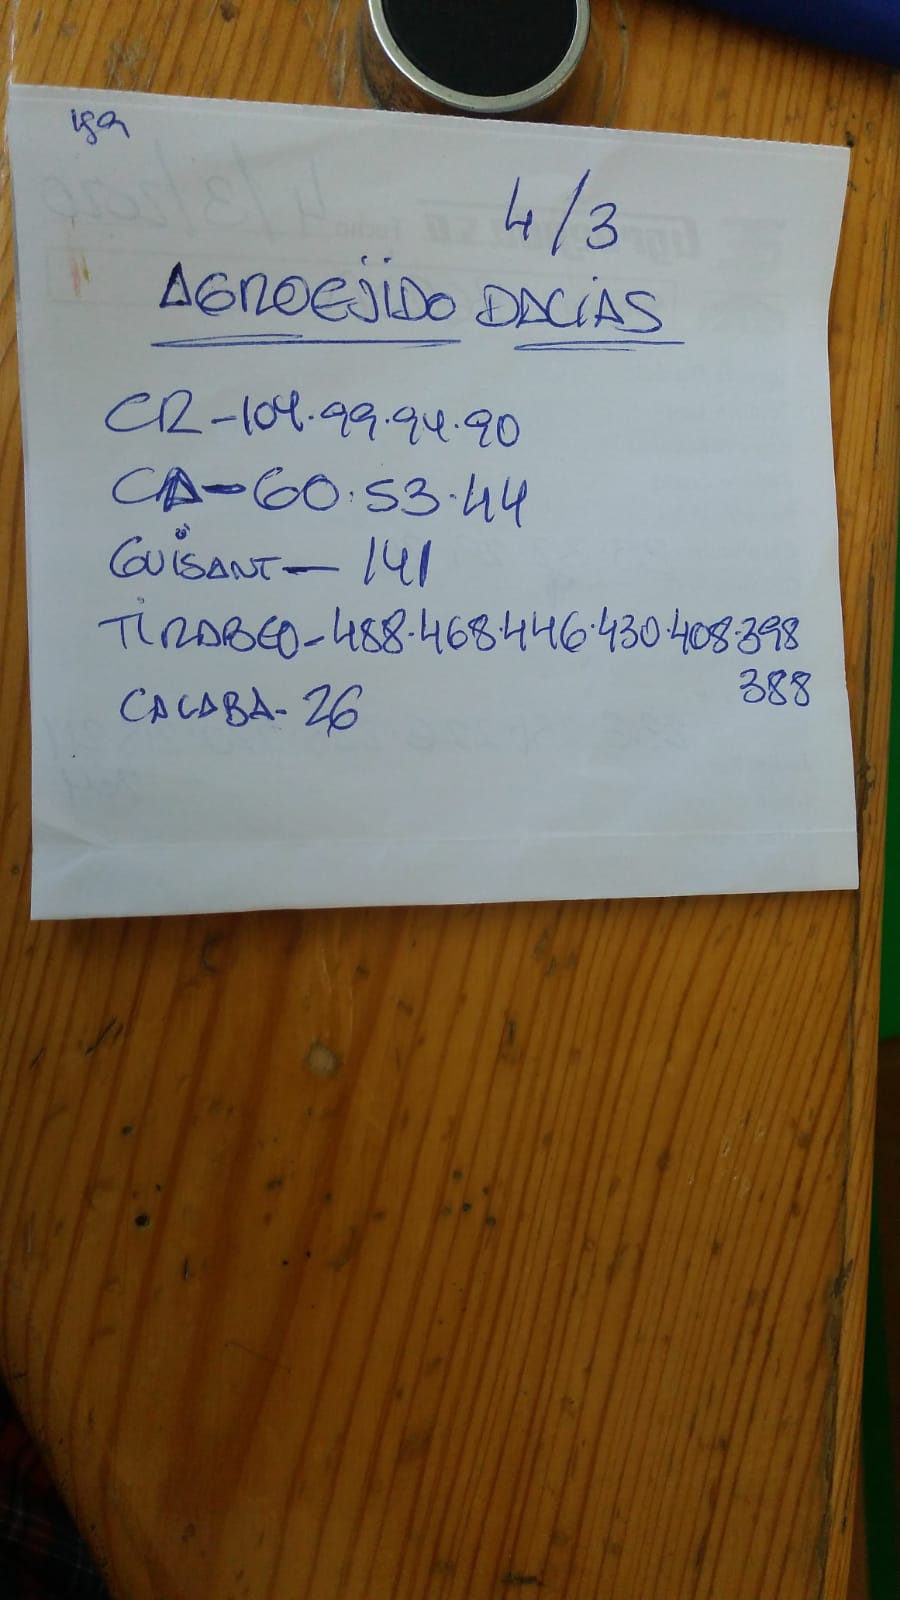 4/3
AGROEJIDO DACIAS
CR-104.99.94.90
CA-60.53.44
GUISANT- 141
TIRABEO-488.468.446.430.408.398
388
CALABA-26